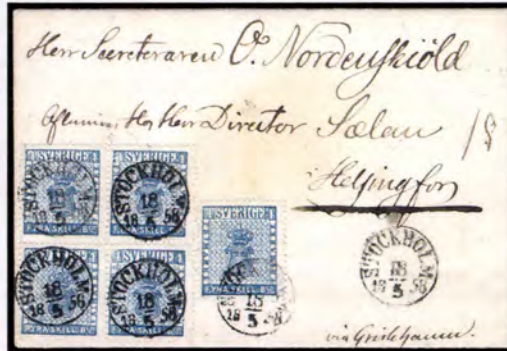 Herr Secreteraren O. Nordenskiöld
Hos Herr Director Sælan
Helsingfors
SVERIGE
FYRA SKILL. BCO
STOCKHOLM
18
5
1858
SVERIGE
FYRA SKILL. BCO
STOCKHOLM
18
5
1858
SVERIGE
FYRA SKILL. BCO
STOCKHOLM
18
5
1858
FYRA SKILL. BCO
STOCKHOLM
18
5
1858
FYRA SKILL. BCO
STOCKHOLM
18
5
1858
STOCKHOLM
18
5
1858
via Grislehamn.